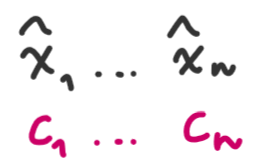 x̂₁ ... x̂ₙ
c₁ ... cₙ